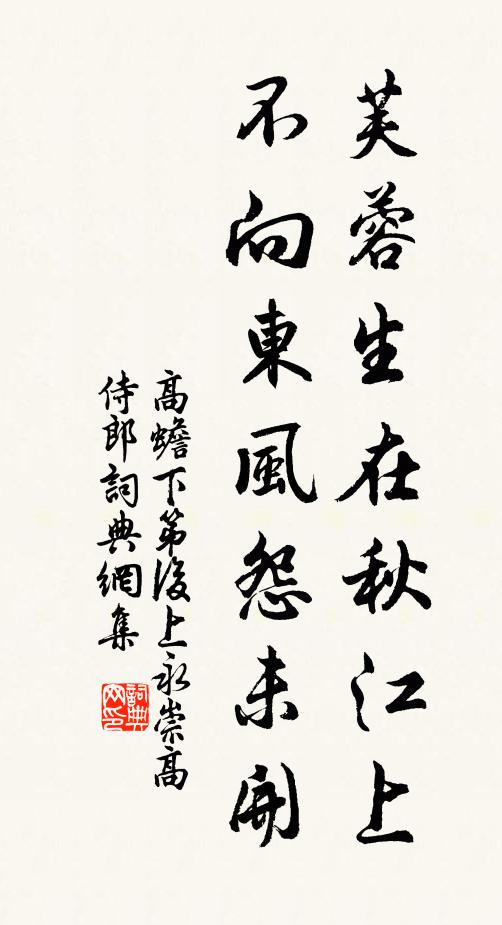 芙蓉生在秋江上
不向東風怨未開
高蟾下第後上永崇高
侍郎詞典網集
詞典
网印